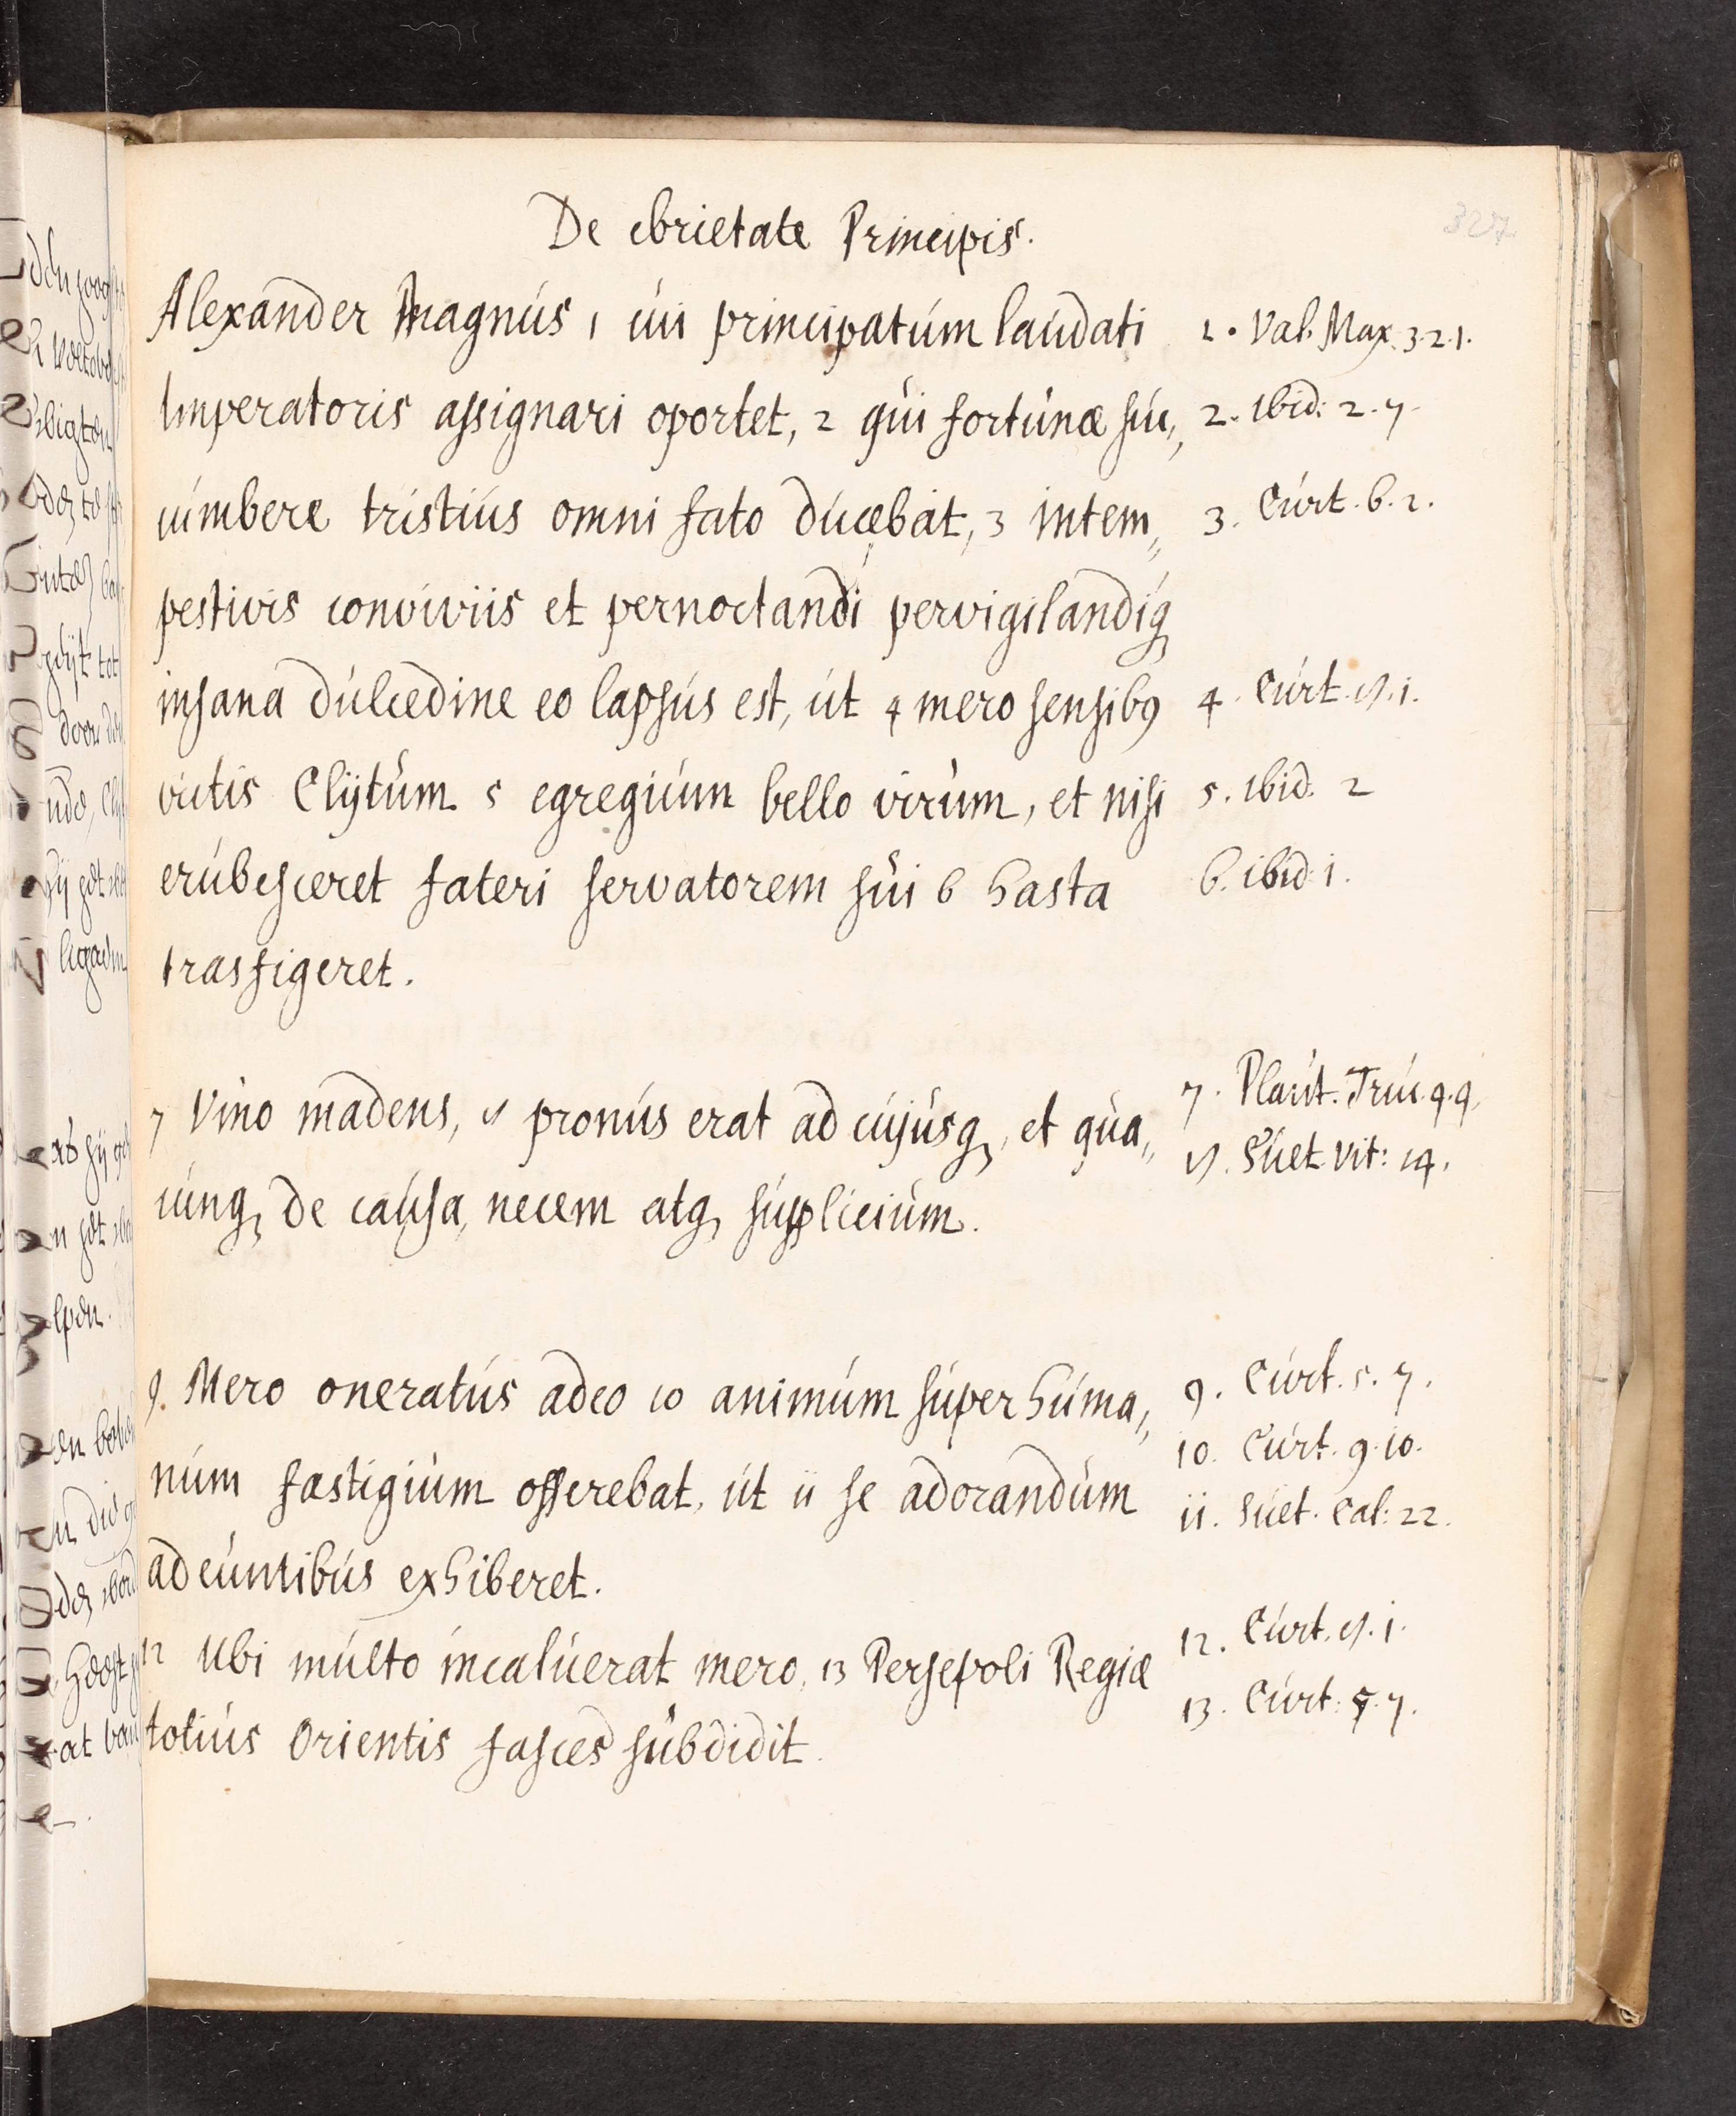 327
De ebrietate Principis.
Alexander Magnus 1 cui principatum laudati
Imperatoris assignari oportet, 2 qui fortunæ suc„
cumbere tristius omni fato ducebat, 3 intem„
pestivis conviviis et pernoctandi pervigilandiq
insana dulcedine eo lapsus est, ut 4 mero sensibꝯ
victis Clijtum 5 egregium bello virum, et nisi
erubesceret fateri servatorem sui 6 hasta
trasfigeret.
7 Vino madens, 8 pronus erat ad cujusq, et qua„
cunq, de causa, necem atq, supplicium.
9. Mero oneratus adeo 10 animum super huma„
num fastigium offerebat, ut ii se adorandum
adeuntibus exhiberet.
12 Ubi multo incaluerat mero, 13 Persepoli Regiæ
totius Orientis fasces subdidit.
1. Val. Max. 3.2.1.
2. Ibid: 2.7.
3. Curt. 6.2.
4. Curt. 8.i.
5. Ibid. 2
6. ibid: i.
7. Plaut. Truc. 4.4.
8. Suet. Vit: 14.
9. Curt. 5. 7.
10. Curt. 9.10.
ii. Suet. Cal: 22.
12. Curt. 8.i.
13. Curt: 5.7.